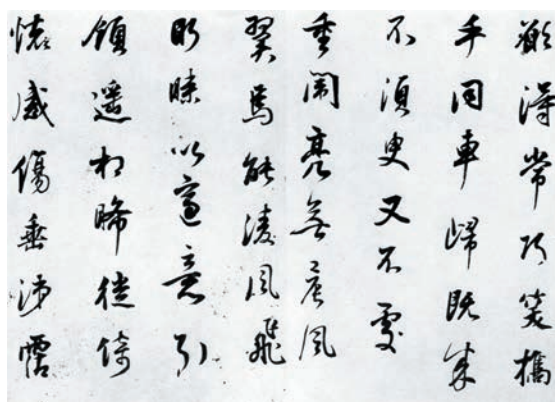 願得常巧笑攜
手同車歸既来
不須臾又不處
重闈亮無晨風
翼焉能淩風飛
眄睞以適意引
領遥相睎徙倚
懷感傷垂涕霑